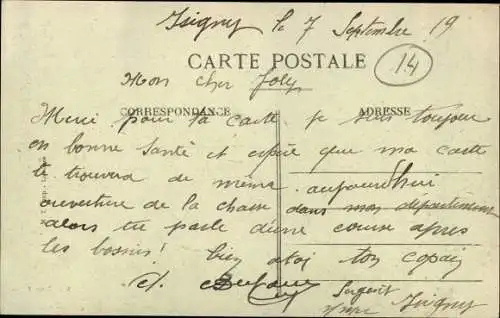 Isigny le 7 Septembre 19
CARTE POSTALE
14
Mon cher Joly
CORRESPONDANCE
ADRESSE
Merci pour ta carte je suis toujours
en bonne santé et espère que ma carte
te trouvera de même aujourd'hui
ouverture de la chasse dans mon département
alors tu parle d'une course après
les bossus! bien à toi ton copain
Sergent
Isigny